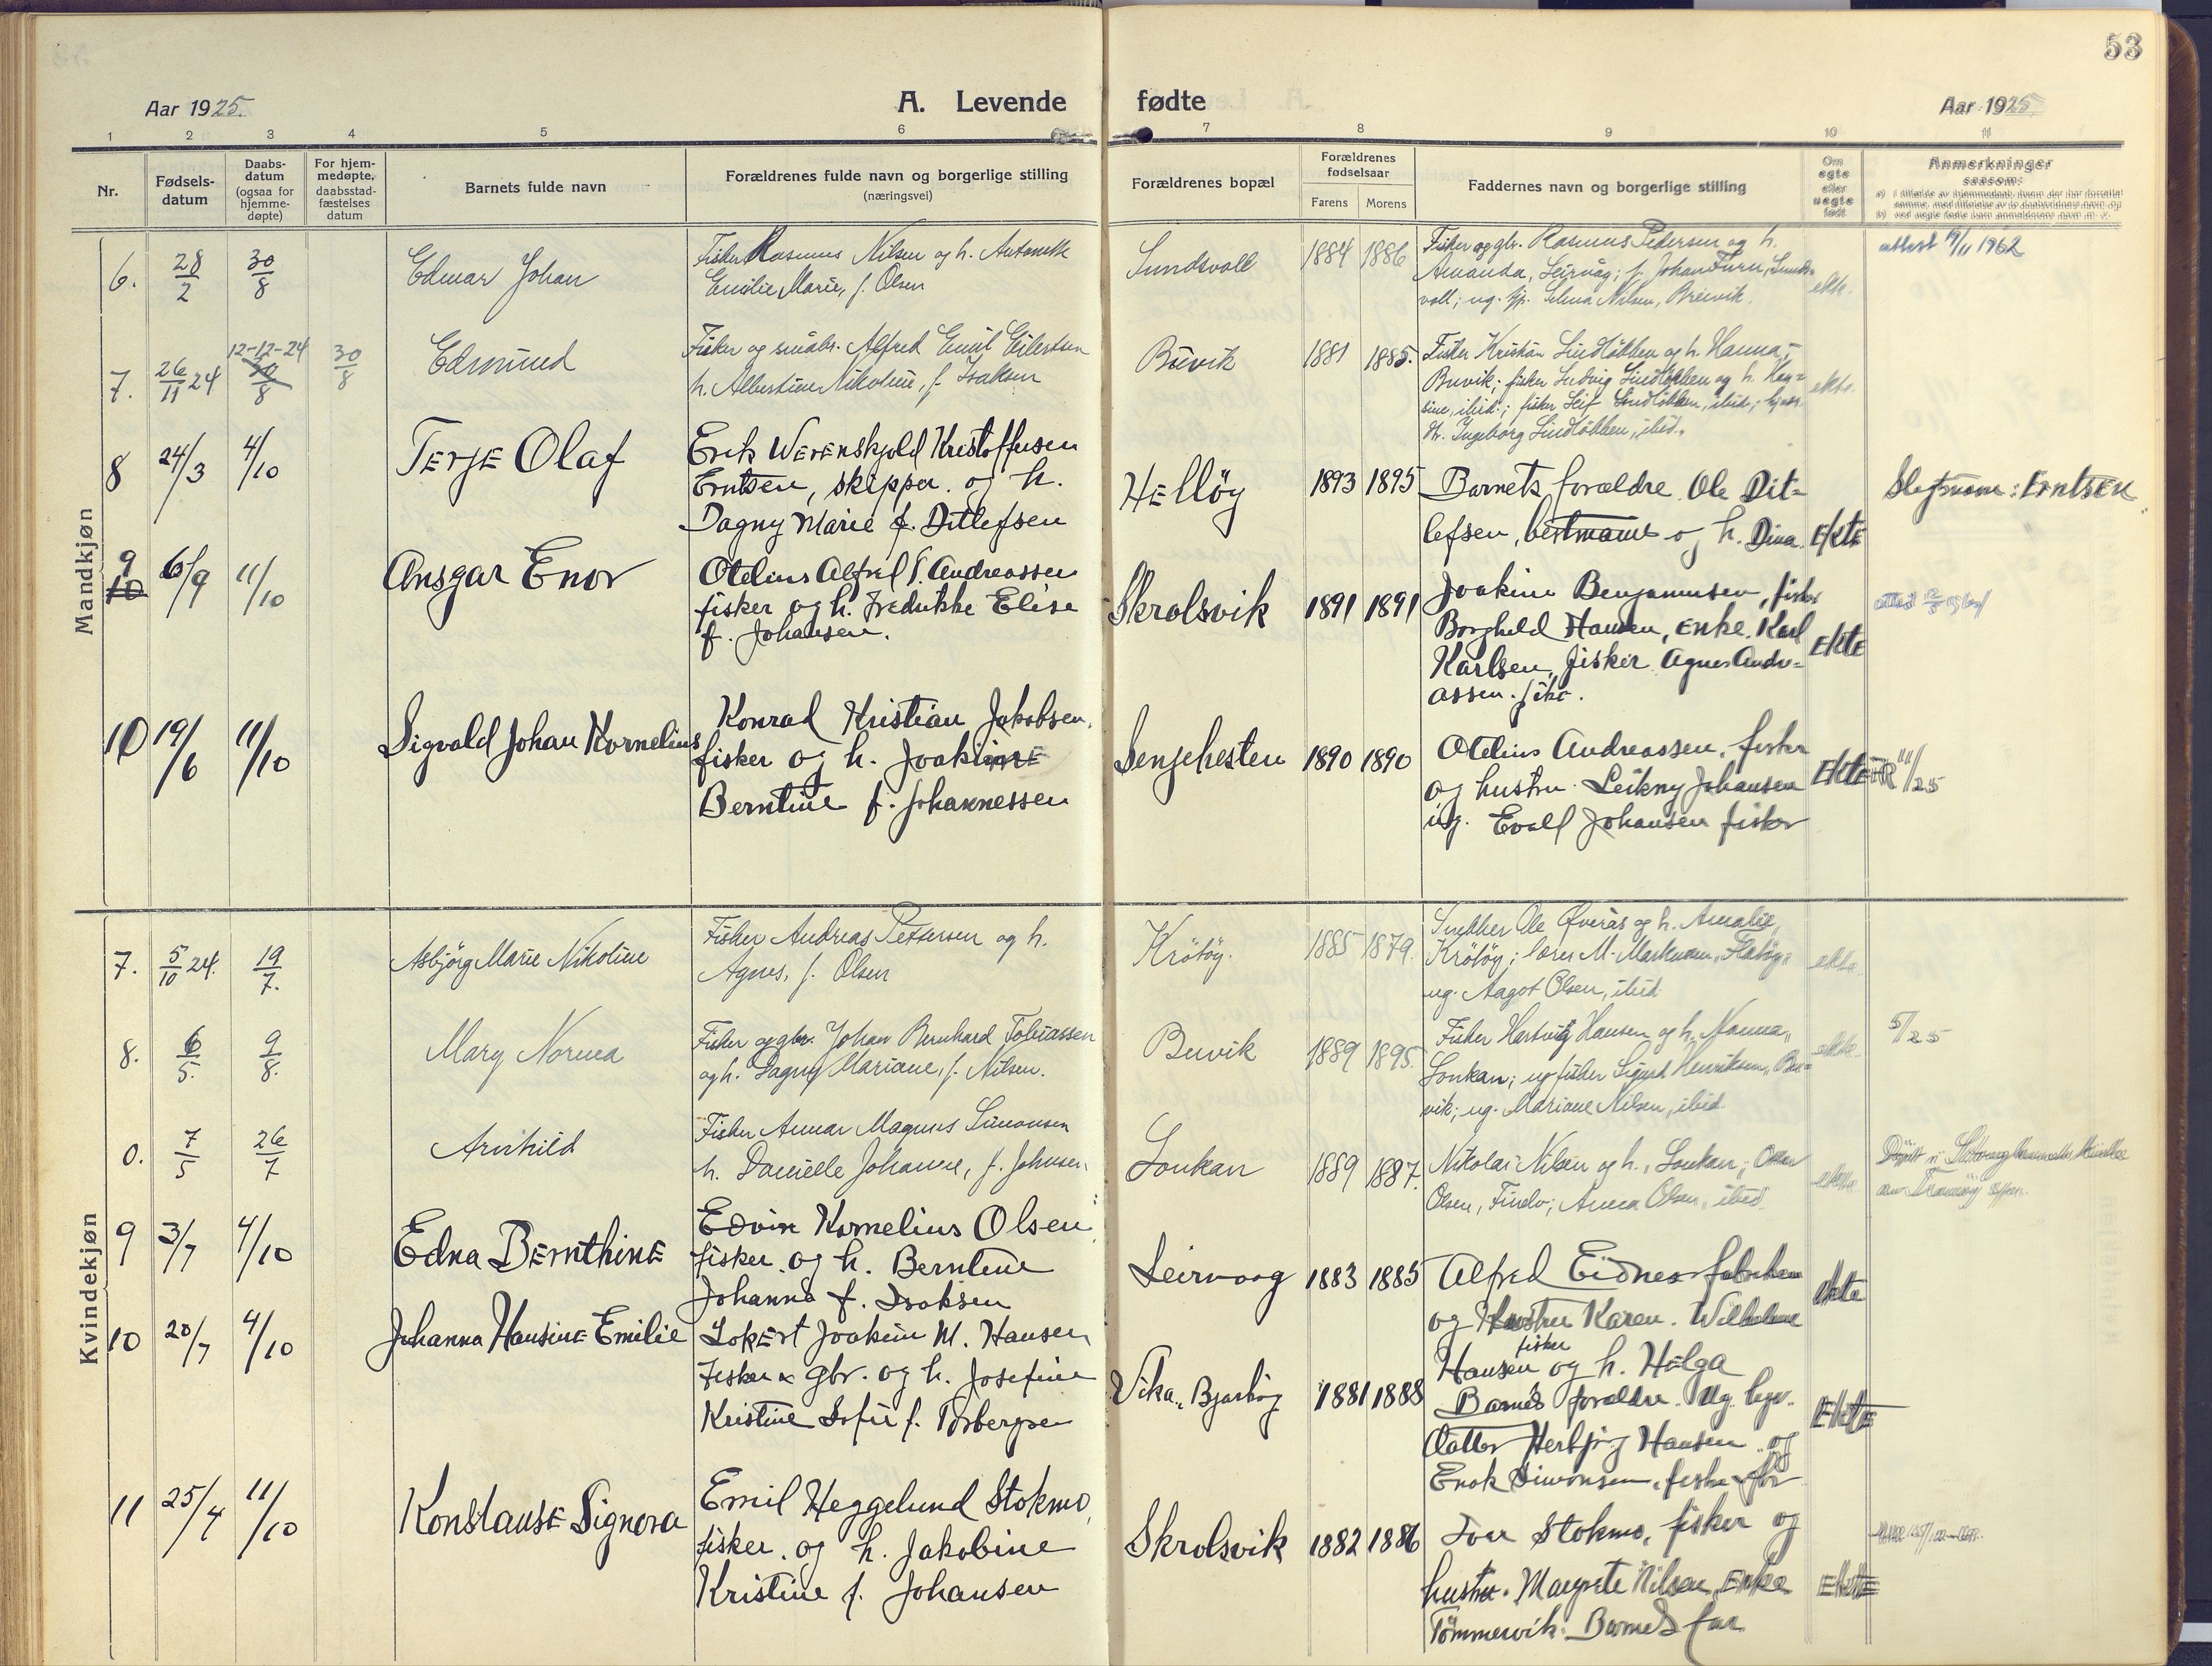 53
Aar 1925.
A. Levende fødte
Aar 1925
1 2 3 4 5 6 7 8 9 10 11
Nr.
Fødsels-
datum
Daabs-
datum
(ogsaa for
hjemme-
døpte)
For hjem-
medøpte,
daabsstad-
fæstelses
datum
Barnets fulde navn
Forældrenes fulde navn og borgerlige stilling
(næringsvei)
Forældrenes bopæl
Forældrenes
fødselsaar
Farens Morens
Faddernes navn og borgerlige stilling
Om
egte
eller
uegte
født
Anmerkninger
saasom:
Mandkjøn
6. 28/2 30/8 Edmar Johan
Fisker Rasmus Nilsen og h. Antonette
Emilie Marie, f. Olsen
Sundsvoll 1884 1886
Fisker og gbr. Rasmus Pedersen og h.
Amanda, Leirvåg; f. Johan Furu, Sunds-
voll; ug. Selma Nilsen, Breivik.
ekte.
attest 19/11 1962
7. 26/11 24 12-12-24 30/8 30/8 Edmund
Fisker og småbr. Alfred Emil Eilertsen
h. Albertine Nikoline, f. Isaksen
Buvik 1881 1885.
Fisker Kristian Lindløkken og h. Hanna,
Buvik; fisker Ludvig Lindløkken og h. Hag-
sine, ibid.; fisker Leif Lindløkken, ibid.;
Ingeborg Lindløkken, ibid.
ekte.
8 24/3 4/10 Terje Olaf
Erik Werenskjold Kristoffersen
Erntsen, skipper. og h.
Dagny Marie f. Ditlefsen
Helløy 1893 1895
Barnets forældre Ole Dit-
lefsen, bestmann og h. Dina.
Ekte
Slegtsnavn: Erntsen
9 10 6/9 11/10 Ansgar Enor
Otelius Alfred P. Andreassen
fisker og h. Fredrikke Elise
f. Johansen.
Skrolsvik 1891 1891
Joakim Benjaminsen, fisker
Borghild Hansen, enke. Karl
Karlsen, fisker Agnes Andre-
assen.
Ekte
10 19/6 11/10 Sigvald Johan Kornelius
Konrad Kristian Jakobsen,
fisker og h. Joakime
Berntine f. Johannessen
Senjehesten 1890 1890
Otelius Andreassen. fisker
og hustru. Leikny Johansen
ug. Evald Johansen fisker
Ekte
11/25
Kvindekjøn
7. 5/10 24. 19/7. Asbjörg Marie Nikoline
Fisker Andreas Pettersen og h.
Agnes, f. Olsen
Krötöy. 1885 1879.
Snekker Ole Øverås og h. Amalie,
Krötöy; lærer M. Markussen, Flatöy,
ug. Aagot Olsen, ibid.
ekte.
8. 6/5. 9/8. Mary Norma
Fisker og gbr. Johan Bernhard Tobiassen
og h. Dagny Mariane, f. Nilsen.
Buvik 1889 1895.
Fisker Hartvig Hansen og h. Nanna,
Lonkan; ug fisker Sigurd Henriksen, Bu-
vik; ug. Mariane Nilsen, ibid.
ekte.
5/25
0. 7/5 26/7 Arnhild
Fisker Annar Magnus Simonsen
h. Danielle Johanne, f. Johnsen
Lonkan 1889 1887.
Nikolai Nilsen og h., Lonkan; Oskar
Olsen, Finlv; Anna Olsen, ibid.
ekte
9 3/7 4/10 Edna Bernthine
Edvin Kornelius Olsen,
fisker. og h. Berntine
Johanna f. Isaksen
Leirvaag 1883 1885
Alfred Eidnes
og Hustru Karen. Wilhelm
fisker
Hansen og h. Helga
ekte
10 20/7 4/10 Johanna Hansine Emilie
Lokert Joakim M. Hansen
Fisker & gbr. og h. Josefine
Kristine Sofie f. Torbergsen
Vika, Bjarköy 1881 1888
Barnets forældre. Ug.
datter Herbjörg Hansen og
Enok Simonsen, fisker
Ekte
11 25/4 11/10 Konstanse Signora
Emil Heggelund Stokmo,
fisker. og h. Jakobine
Kristine f. Johansen
Skrolsvik 1882 1886
Iver Stokmo, fisker og
hustru. Margrete Nilsen Enke
Tömmervik. Barnets far.
Ekte